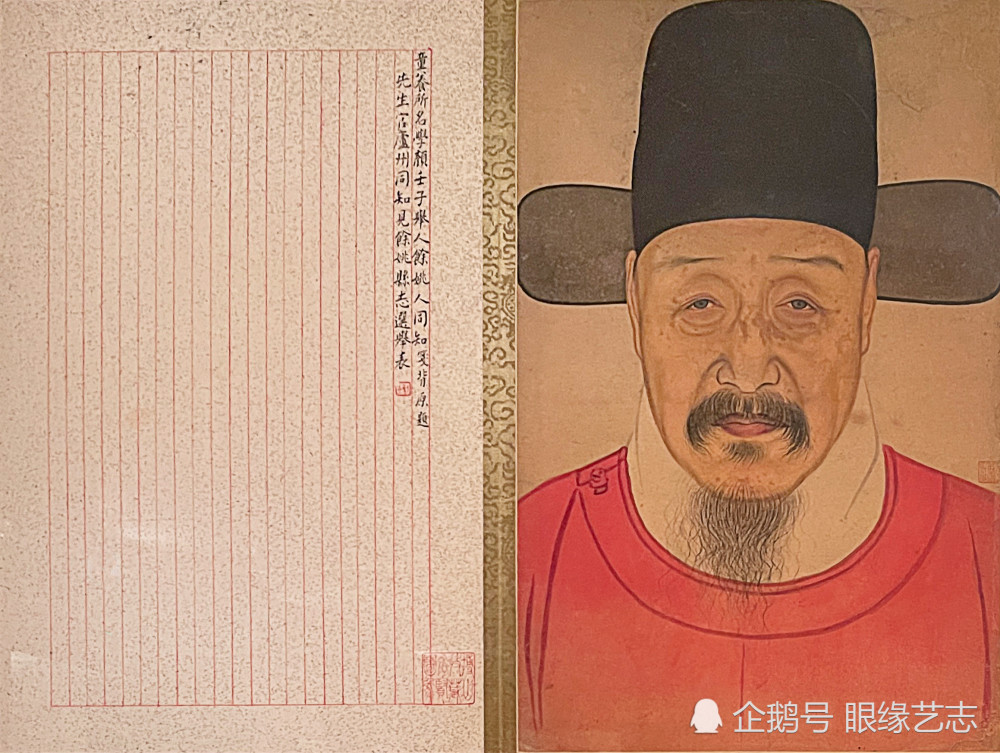 童養所名學顏壬子舉人餘姚人同知
先生官廬州同知見餘姚縣志選舉表
企鹅号 眼缘艺志